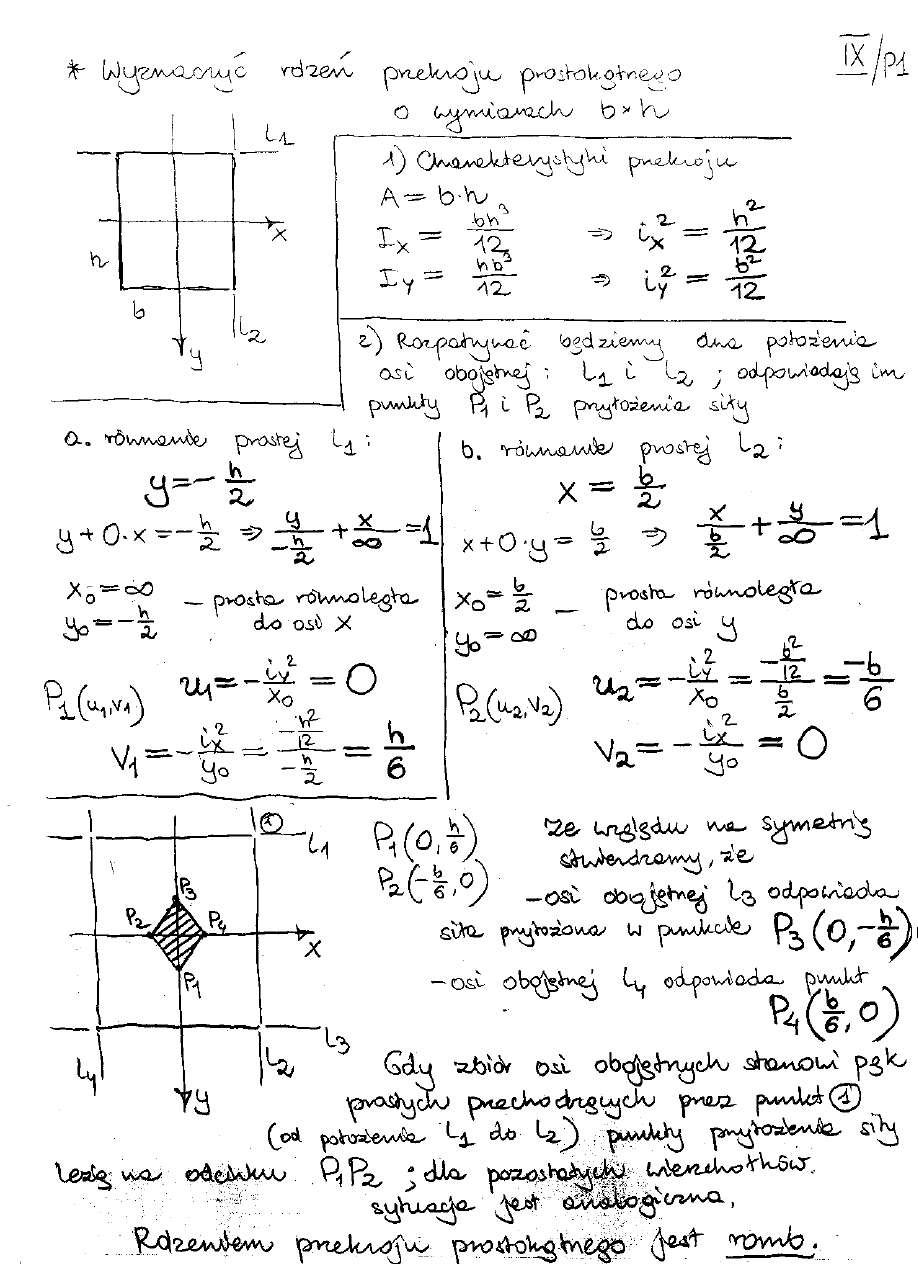 IX/P1
* Wyznaczyć rdzeń przekroju prostokątnego
o wymiarach b×h
l1
x
h
b
l2
y
1) Charakterystyki przekroju
A = b·h
Ix = bh³/12 ⇒ ix² = h²/12
Iy = hb³/12 ⇒ iy² = b²/12
2) Rozpatrywać będziemy dwa położenia
osi obojętnej: l1 i l2; odpowiadają im
punkty P1 i P2 przyłożenia siły
a. równanie prostej l1:
y = -h/2
y + 0·x = -h/2 ⇒ y/(-h/2) + x/∞ = 1
x0 = ∞
y0 = -h/2
– prosta równoległa
do osi x
P1(u1,v1)
u1 = -iy²/x0 = 0
v1 = -ix²/y0 = (-h²/12)/(-h/2) = h/6
b. równanie prostej l2:
x = b/2
x + 0·y = b/2 ⇒ x/(b/2) + y/∞ = 1
x0 = b/2
y0 = ∞
– prosta równoległa
do osi y
P2(u2,v2)
u2 = -iy²/x0 = (-b²/12)/(b/2) = -b/6
v2 = -ix²/y0 = 0
1
l1
P3
P2
P4
x
P1
l3
l4
l2
y
P1(0, h/6)
P2(-b/6, 0)
Ze względu na symetrię
stwierdzamy, że
– osi obojętnej l3 odpowiada
siła przyłożona w punkcie P3(0, -h/6),
– osi obojętnej l4 odpowiada punkt
P4(b/6, 0)
Gdy zbiór osi obojętnych stanowi pęk
prostych przechodzących przez punkt 1
(od położenia l1 do l2) punkty przyłożenia siły
leżą na odcinku P1P2; dla pozostałych wierzchołków
sytuacja jest analogiczna.
Rdzeniem przekroju prostokątnego jest romb.